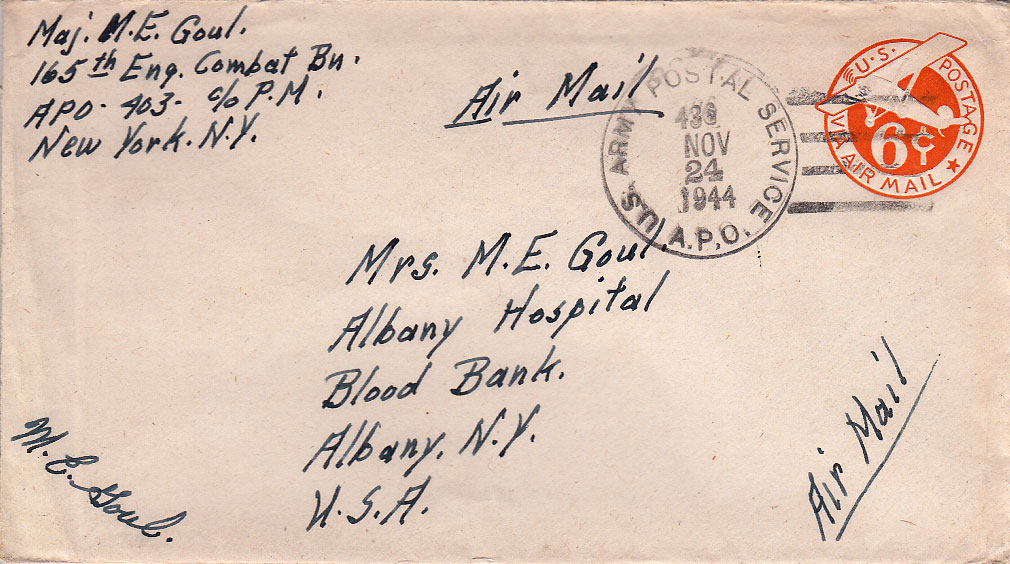 Maj. M.E. Goul.
165th Eng. Combat Bn.
APO - 403 - c/o P.M.
New York. N.Y.
Air Mail
U.S. ARMY POSTAL SERVICE
436
NOV
24
1944
A.P.O.
U.S. POSTAGE
6¢
VIA AIR MAIL
Mrs. M.E. Goul.
Albany Hospital
Blood Bank.
Albany. N.Y.
U.S.A.
M. E. Goul.
Air Mail